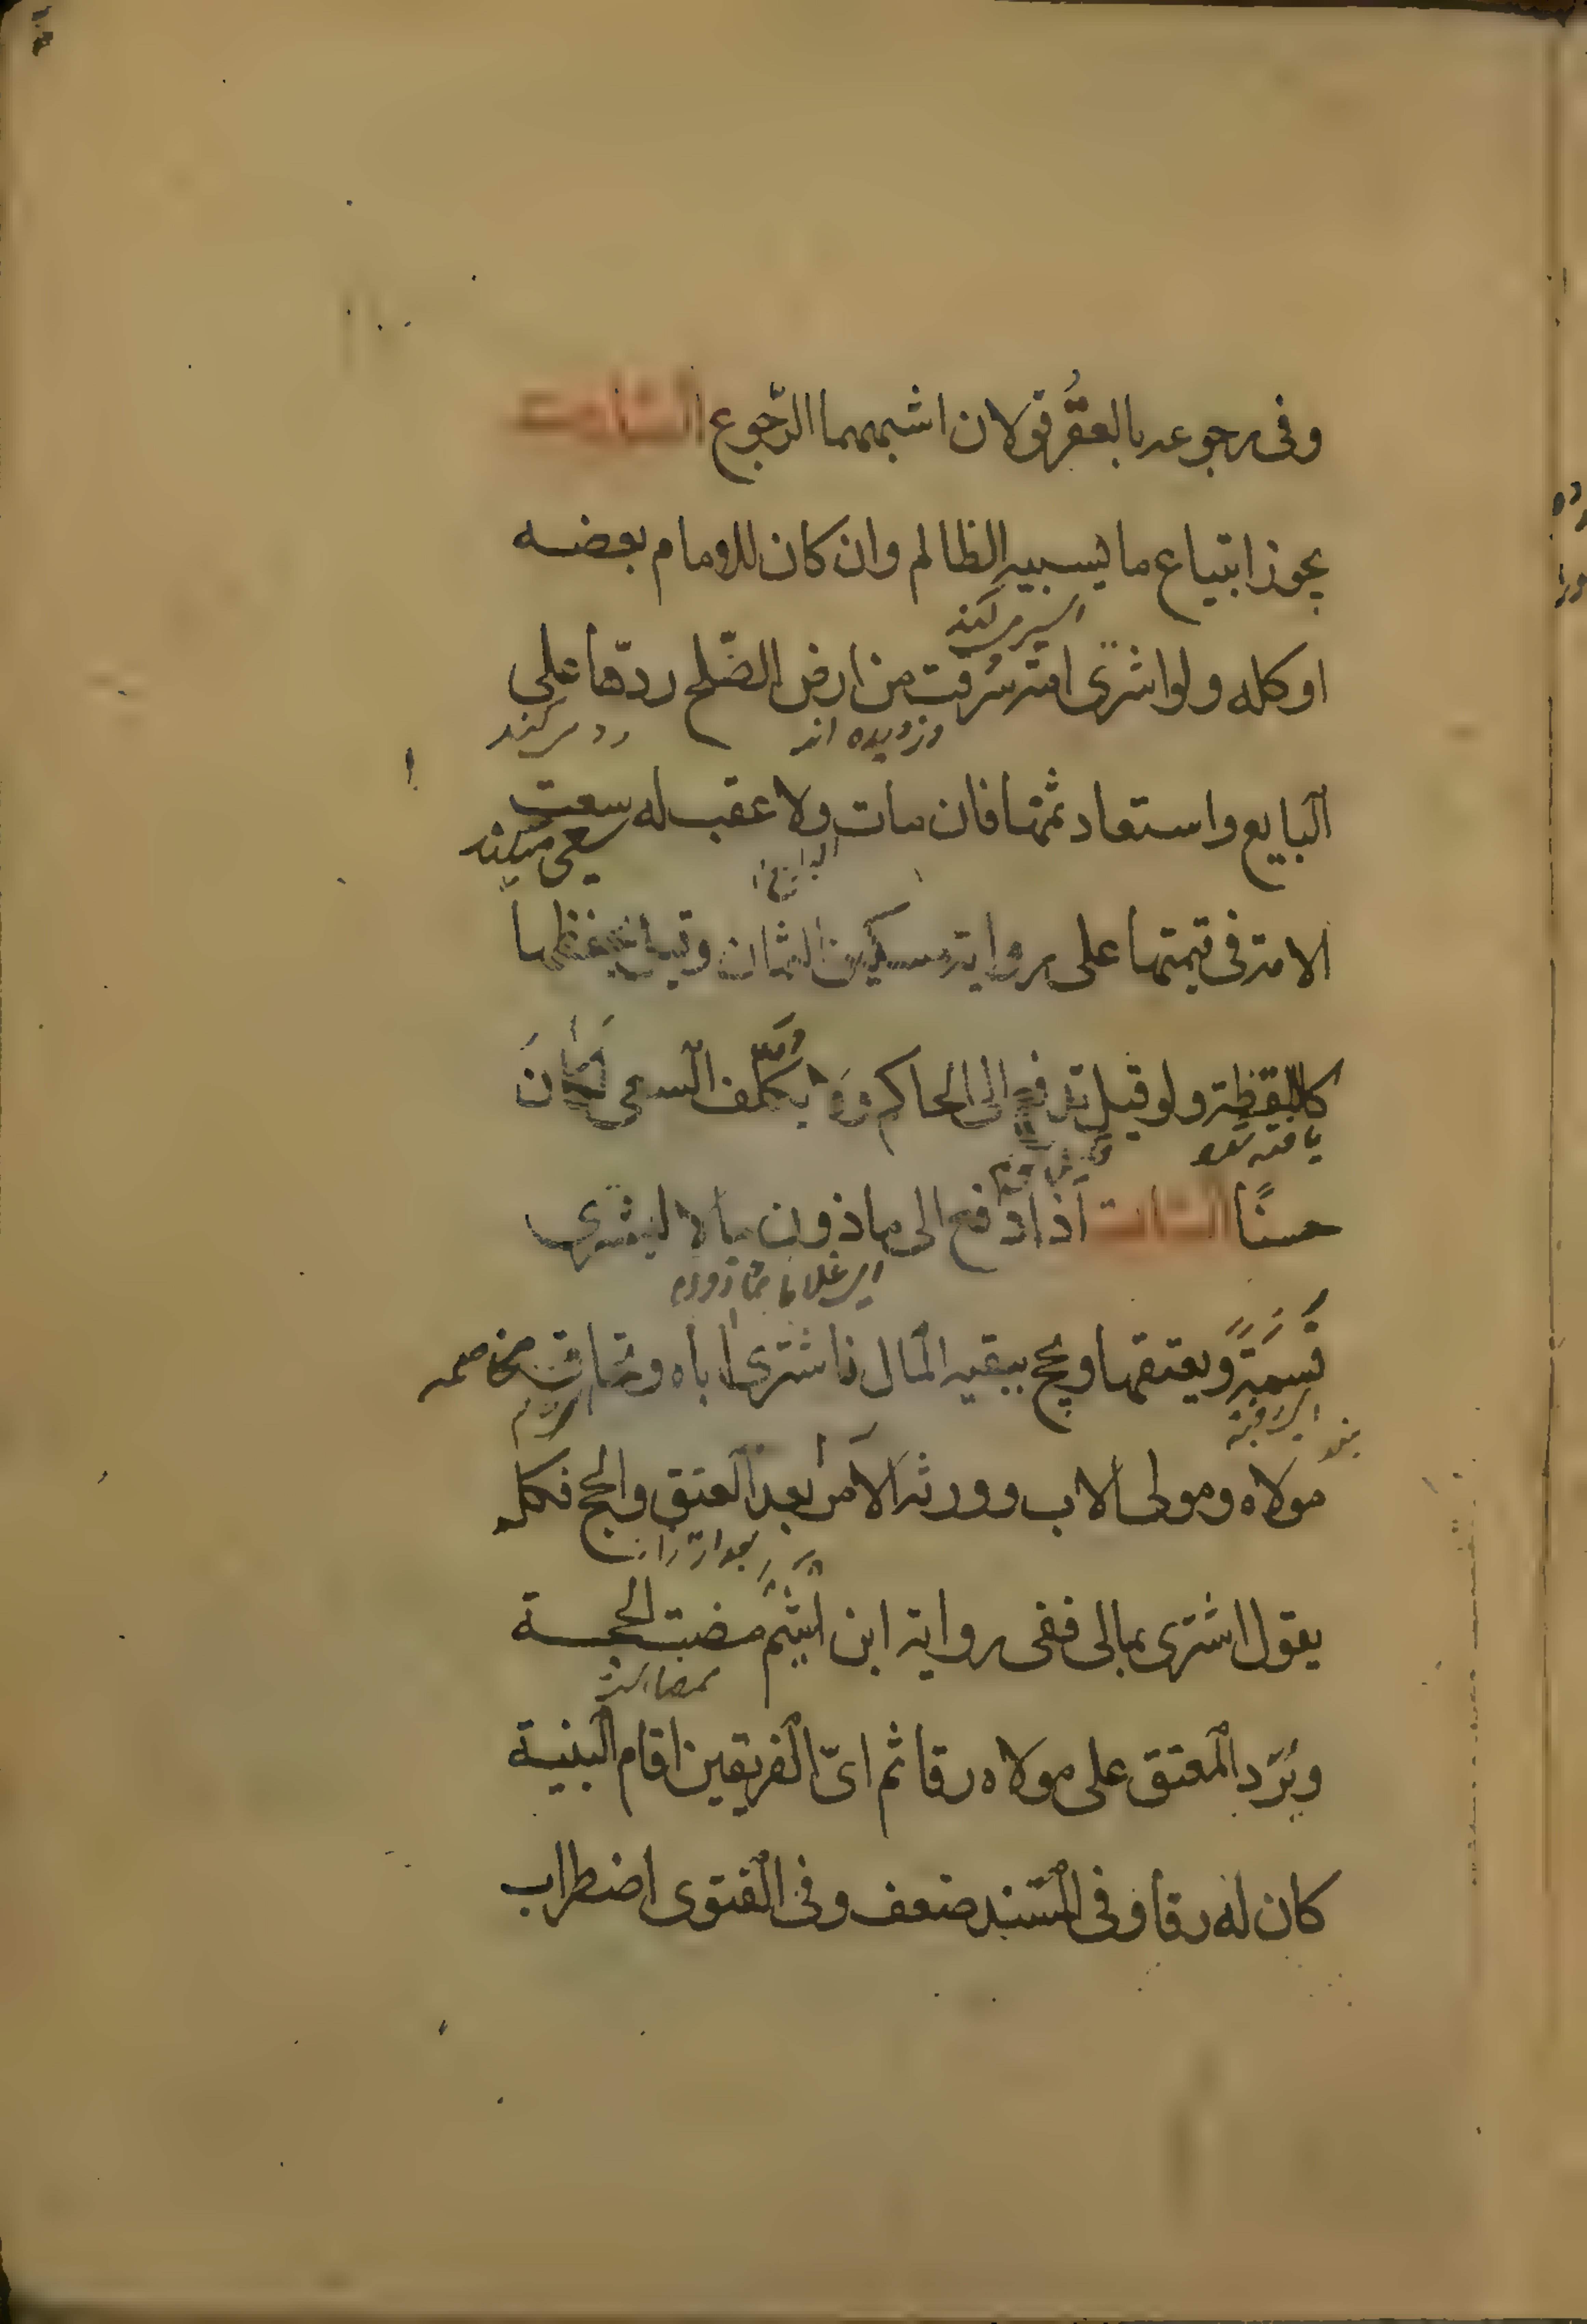 وفى رجوعه بالعُقر قولان اشبههما الرّجوع
يجوز ابتياع ما يسبيه الظالم وان كان للامام بعضه
اسير ميكند
او كله ولو اشترى امة سُرقت من ارض الصّلح ردّها على
دزديده اند رد ميكند
البايع واستعاد ثمنها فان مات ولا عقب له سعت
سعى ميكند
الامة فى قيمتها على رواية مسكين السمان وقيل يحفظها
كاللقطة ولو قيل تدفع الى الحاكم ولا يكلّف السعى كان
حسنًا الثامن اذا دفع الى ماذون مالا ليشترى
نسمةً ويعتقها ويحج ببقية المال فاشترى اباه وتحاق مخاصمه
مولاه ومولى الاب وورثه الآمر بعد العتق والحج فكل
يقول اشترى بمالى ففى رواية ابن اشيم مضت الحجة
ويُرّد المعتق على مولاه رقا ثم اىّ الفريقين اقام البنية
كان له رقا وفى السّند ضعف وفى الفتوى اضطراب